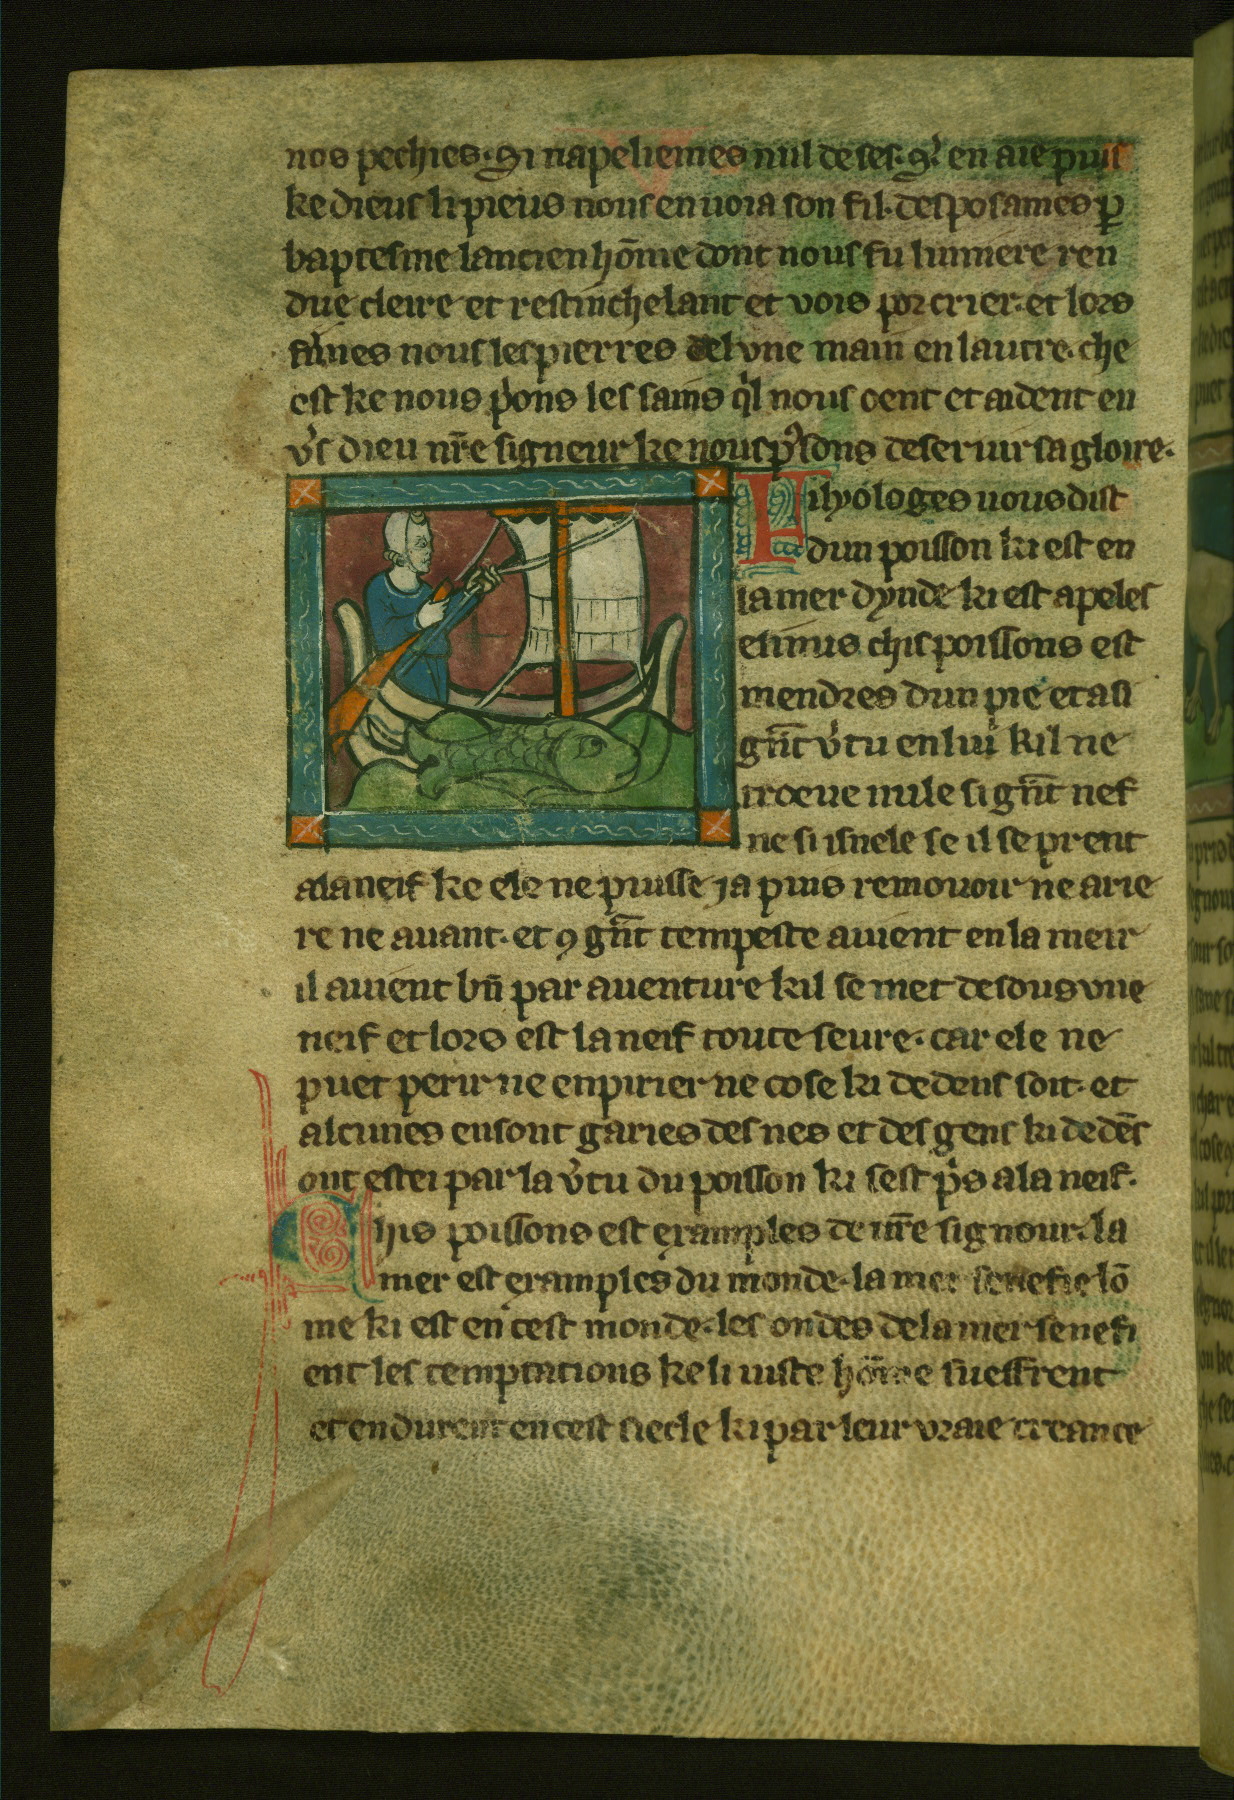 nos pechies. Si napeliemes nul de ses. qͥ en aie puis
ke dieus li pieus nous enuoia son fil. desposames ꝑ
baptesme lancien hōme dont nous fu lumiere ren
due cleire et restinchelant et vois por crier. et lors
nous les pierres del vne main en lautre. che
est ke nous pͥons les sains qͥl nous oent et aident en
vͥs dieu nr̄e signeur ke nous deseruir sa gloire.
Fisyologes nous dist
dun poisson ki est en
la mer dynde ki est apeles
chis poissons est
mendres dun pie et a si
gn̄t vͥtu en lui kil ne
troeue nule si gn̄t nef
ne si isnele se il se prent
a la neif ke ele ne puisse ja puis remouoir ne arie
re ne auant. et ꝯ gn̄t tempeste auient en la meir
il auient bn̄ par auenture kil se met desous vne
neif et lors est la neif toute seure. car ele ne
puet perir ne enpirier ne cose ki dedens soit. et
alcunes en sont garies des nes et des gens ki dedēs
ont estei par la vͥtu du poisson ki sest pͥs a la neif.
Chis poissons est examples de nr̄e signour. la
mer est examples du monde. la mer senefie lō
me ki est en cest monde. les ondes de la mer senefi
ent les temptations ke li iuste hōme sueffrent
et endurent en cest siecle ki par leur vraie creance